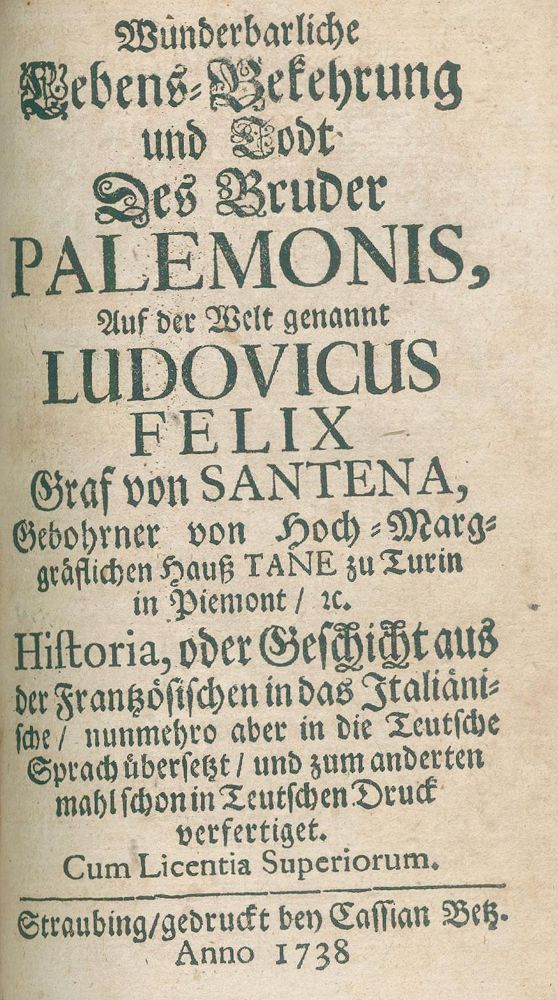 Wunderbarliche
Lebens-Bekehrung
und Todt
Des Bruder
PALEMONIS,
Auf der Welt genannt
LUDOVICUS
FELIX
Graf von SANTENA,
Gebohrner von Hoch-Marg-
gräflichen Hauß TANE zu Turin
in Piemont / ꝛc.
Historia, oder Geschicht aus
der Frantzösischen in das Italiäni-
sche / nunmehro aber in die Teutsche
Sprach übersetzt / und zum anderten
mahl schon in Teutschen Druck
verfertiget.
Cum Licentia Superiorum.
Straubing / gedruckt bey Cassian Betz.
Anno 1738